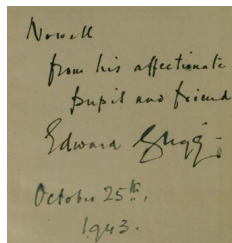 Nowell
from his affectionate
pupil and friend
Edward Grigg.
October 25th,
1943.